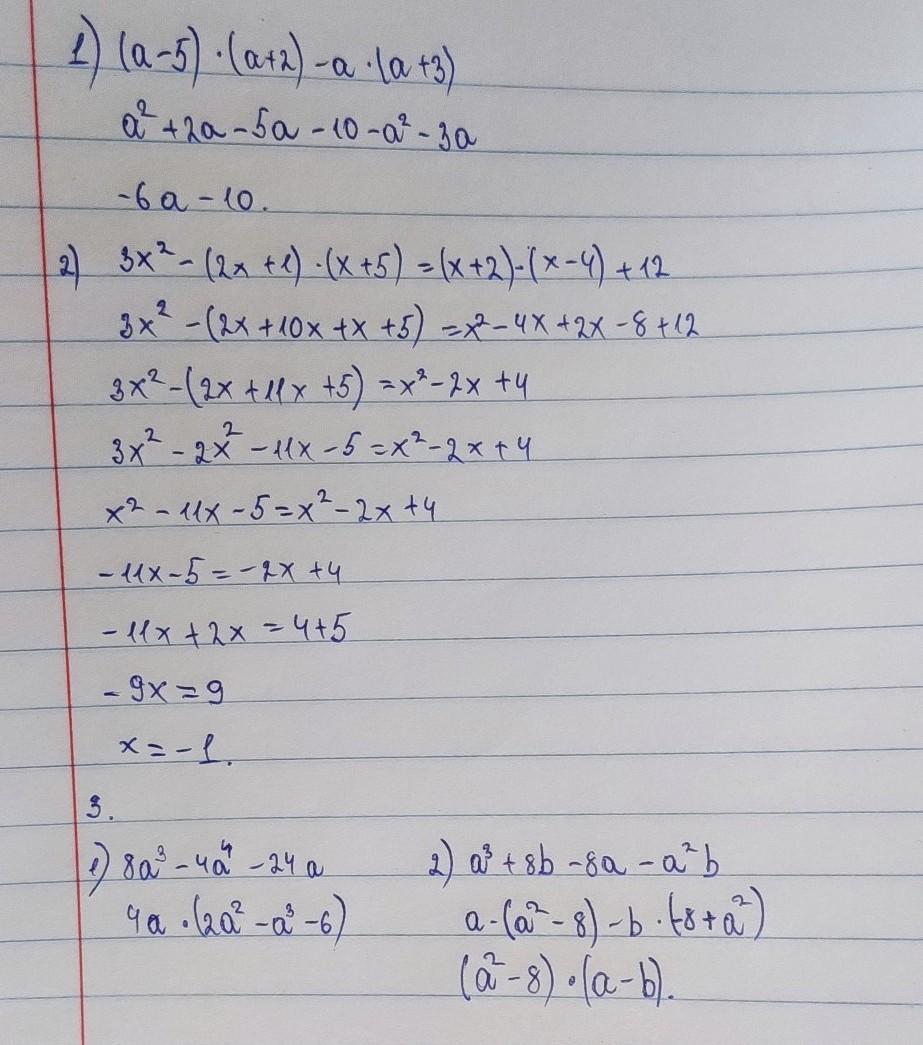 1) (a-5)·(a+2)-a·(a+3)
a²+2a-5a-10-a²-3a
-6a-10.
2) 3x²-(2x+1)·(x+5)=(x+2)·(x-4)+12
3x²-(2x+10x+x+5)=x²-4x+2x-8+12
3x²-(2x+11x+5)=x²-2x+4
3x²-2x²-11x-5=x²-2x+4
x²-11x-5=x²-2x+4
-11x-5=-2x+4
-11x+2x=4+5
-9x=9
x=-1.
3.
1) 8a³-4a⁴-24a
4a·(2a²-a³-6)
2) a³+8b-8a-a²b
a·(a²-8)-b·(-8+a²)
(a²-8)·(a-b).